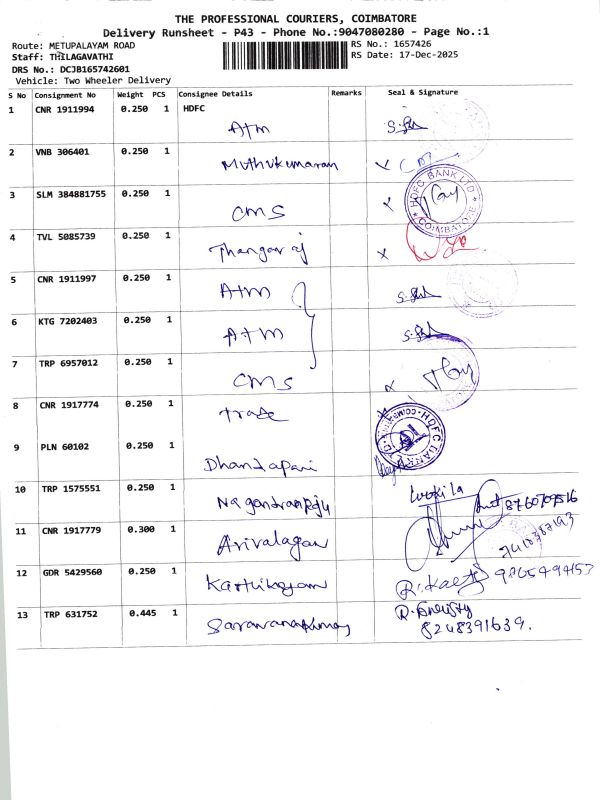 THE PROFESSIONAL COURIERS, COIMBATORE
Delivery Runsheet - P43 - Phone No.:9047080280 - Page No.:1
Route: METUPALAYAM ROAD
RS No.: 1657426
Staff: THILAGAVATHI
RS Date: 17-Dec-2025
DRS No.: DCJB165742601
Vehicle: Two Wheeler Delivery
S No Consignment No Weight PCS Consignee Details Remarks Seal & Signature
1 CNR 1911994 0.250 1 HDFC
ATM
2 VNB 306401 0.250 1
Muthukumaran
HDFC BANK LTD
COIMBATORE
3 SLM 384881755 0.250 1
CMS
4 TVL 5085739 0.250 1
Thangaraj
5 CNR 1911997 0.250 1
ATM
6 KTG 7202403 0.250 1
ATM
7 TRP 6957012 0.250 1
CMS
8 CNR 1917774 0.250 1
Trade
HDFC BANK
9 PLN 60102 0.250 1
Dhandapani
10 TRP 1575551 0.250 1
8760707516
11 CNR 1917779 0.300 1
Arivalagan
7418387193
12 GDR 5429560 0.250 1
9865494153
13 TRP 631752 0.445 1
Saravanakumar
8248391639.